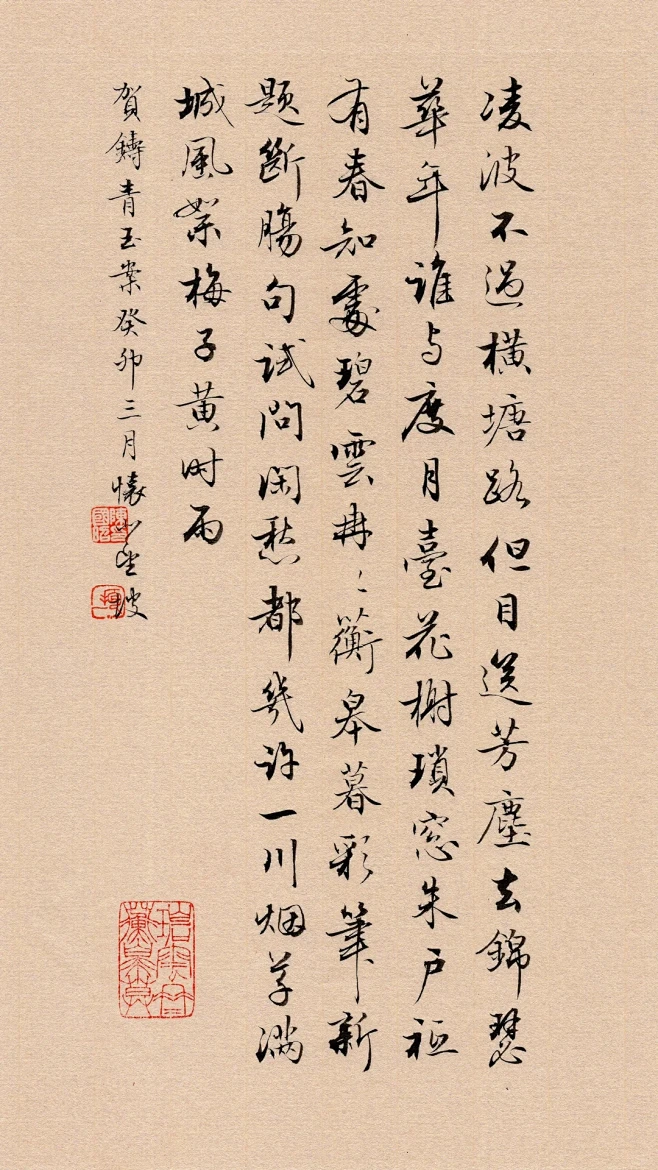 凌波不過橫塘路但目送芳塵去錦瑟
華年誰与度月臺花榭瑣窓朱戶祗
有春知處碧雲冉〻蘅皋暮彩筆新
題斷腸句试問閑愁都幾许一川烟草满
城風絮梅子黄时雨
賀鑄青玉案癸卯三月懷